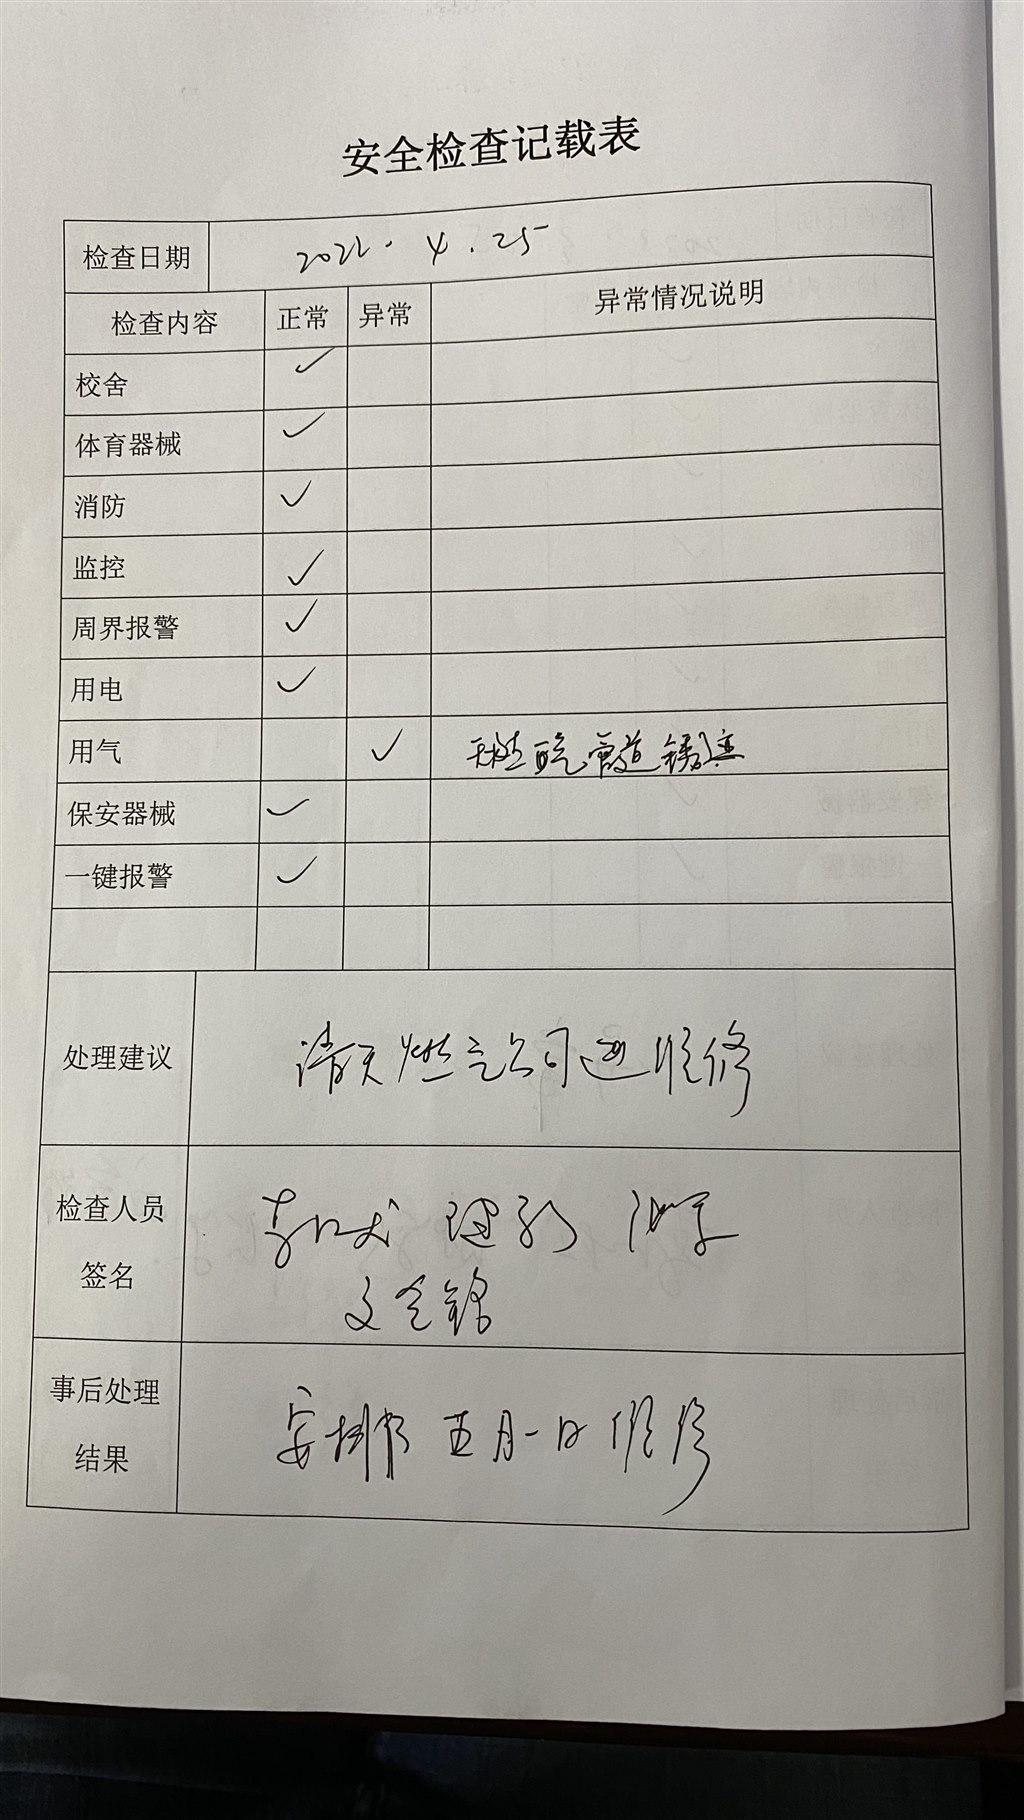 安全检查记载表
检查日期 2022.4.25
检查内容 正常 异常 异常情况说明
校舍 ✓
体育器械 ✓
消防 ✓
监控 ✓
周界报警 ✓
用电 ✓
用气 ✓ 管道锈
保安器械 ✓
一键报警 ✓
处理建议 请天燃气公司 修
检查人员
签名
文 铭
事后处理
结果
五月一日